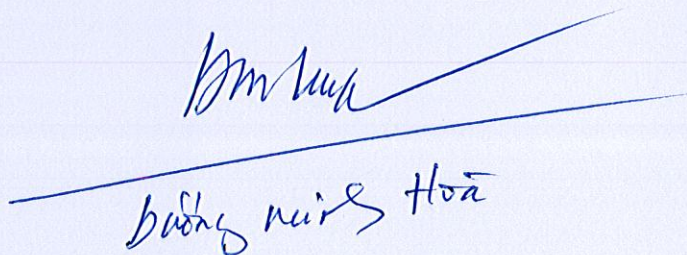 Dương Minh Hoà